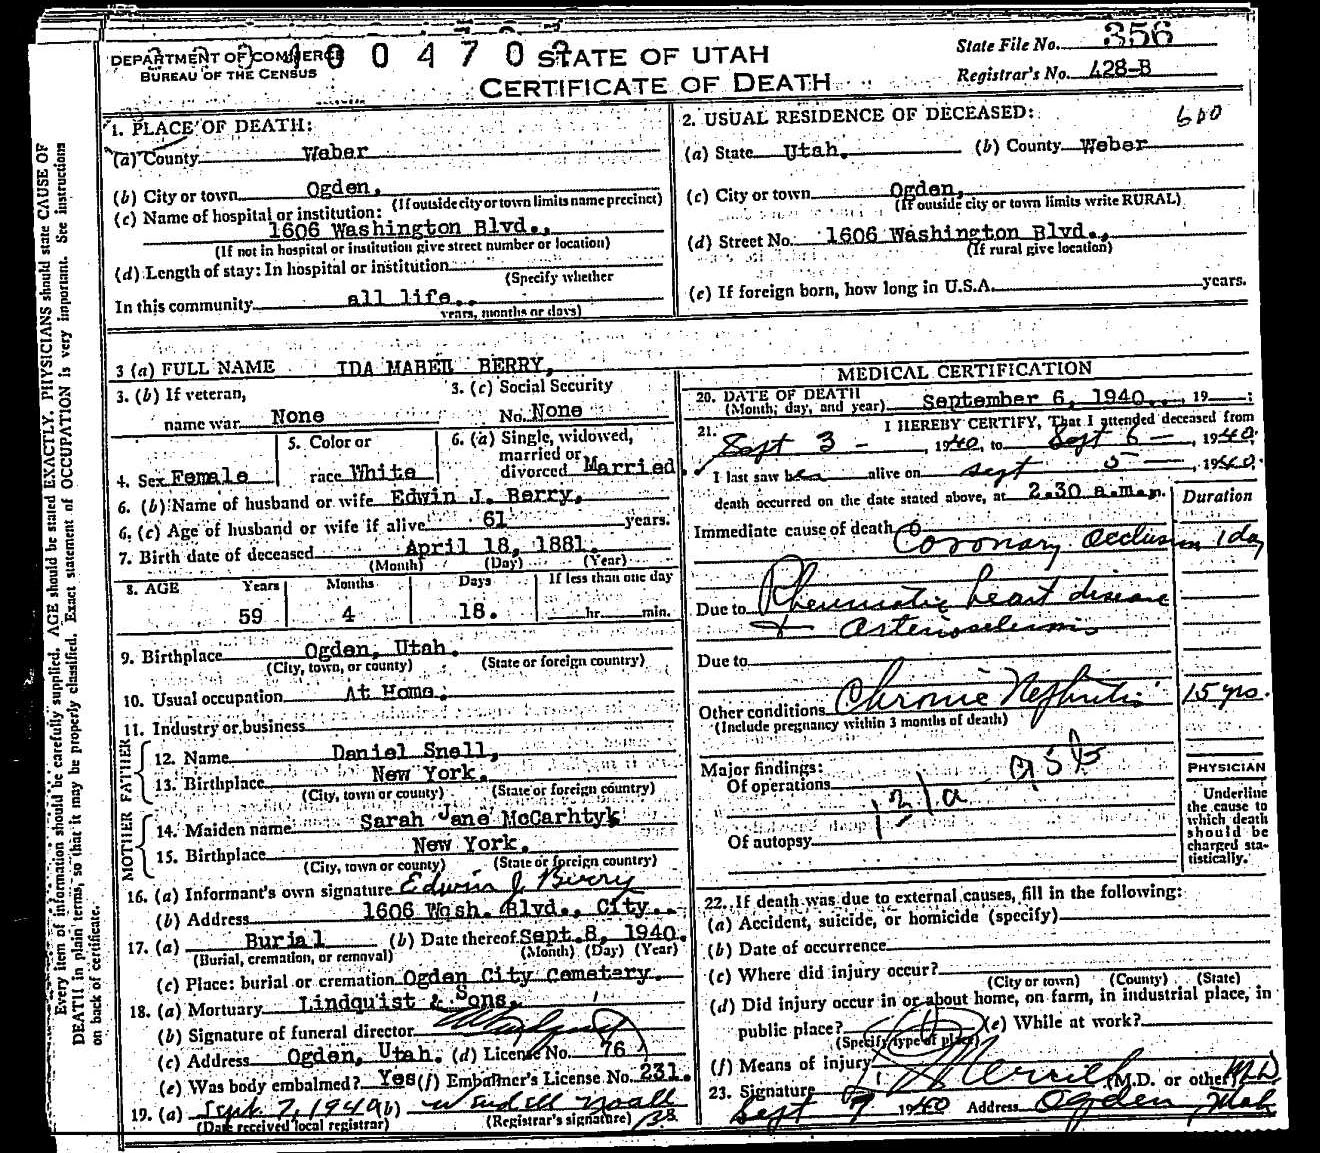 DEPARTMENT OF COMMERCE
BUREAU OF THE CENSUS
400470
STATE OF UTAH
CERTIFICATE OF DEATH
State File No. 356
Registrar's No. 428-B
1. PLACE OF DEATH:
(a) County Weber
(b) City or town Ogden,
(If outside city or town limits name precinct)
(c) Name of hospital or institution:
1606 Washington Blvd.,
(If not in hospital or institution give street number or location)
(d) Length of stay: In hospital or institution
(Specify whether
In this community all life.
years, months or days)
2. USUAL RESIDENCE OF DECEASED:
600
(a) State Utah. (b) County Weber
(c) City or town Ogden,
(If outside city or town limits write RURAL)
(d) Street No. 1606 Washington Blvd.,
(If rural give location)
(e) If foreign born, how long in U.S.A. years.
3 (a) FULL NAME IDA MABEL BERRY,
3. (b) If veteran,
name war None
3. (c) Social Security
No. None
4. Sex Female
5. Color or
race White
6. (a) Single, widowed,
married or
divorced Married.
6. (b) Name of husband or wife Edwin J. Berry.
6. (c) Age of husband or wife if alive 61 years.
7. Birth date of deceased April 18, 1881.
(Month) (Day) (Year)
8. AGE Years Months Days If less than one day
59 4 18. hr. min.
9. Birthplace Ogden, Utah.
(City, town, or county) (State or foreign country)
10. Usual occupation At Home.
11. Industry or business
FATHER
12. Name Daniel Snell,
13. Birthplace New York.
(City, town or county) (State or foreign country)
MOTHER
14. Maiden name Sarah Jane McCarhtyk
15. Birthplace New York.
(City, town or county) (State or foreign country)
16. (a) Informant's own signature Edwin J. Berry
(b) Address 1606 Wash. Blvd., City.
17. (a) Burial (b) Date thereof Sept.8, 1940.
(Burial, cremation, or removal) (Month) (Day) (Year)
(c) Place: burial or cremation Ogden City Cemetery.
18. (a) Mortuary Lindquist & Sons.
(b) Signature of funeral director
(c) Address Ogden, Utah. (d) License No. 76
(e) Was body embalmed? Yes (f) Embalmer's License No. 231.
19. (a) Sept. 7, 1940 (b) Wendell Noall
(Date received local registrar) (Registrar's signature)
MEDICAL CERTIFICATION
20. DATE OF DEATH
(Month, day, and year) September 6, 1940. , 19 ;
21. I HEREBY CERTIFY, That I attended deceased from
Sept 3 - , 1940, to Sept 6 - , 1940;
I last saw her alive on sept 5 - , 1940;
death occurred on the date stated above, at 2.30 a.m.
Duration
Immediate cause of death Coronary Occlusion 1 day
Due to Rheumatic heart disease
+ arteriosclerosis
Due to
Other conditions Chronic Nephritis 15 yrs.
(Include pregnancy within 3 months of death)
Major findings:
Of operations
Of autopsy
PHYSICIAN
Underline
the cause to
which death
should be
charged sta-
tistically.
22. If death was due to external causes, fill in the following:
(a) Accident, suicide, or homicide (specify)
(b) Date of occurrence
(c) Where did injury occur?
(City or town) (County) (State)
(d) Did injury occur in or about home, on farm, in industrial place, in
public place? (e) While at work?
(Specify type of place)
(f) Means of injury
23. Signature Merrill (M.D. or other) M.D.
Sept 7 1940 Address Ogden Utah
Every item of information should be carefully supplied. AGE should be stated EXACTLY. PHYSICIANS should state CAUSE OF
DEATH in plain terms, so that it may be properly classified. Exact statement of OCCUPATION is very important. See instructions
on back of certificate.